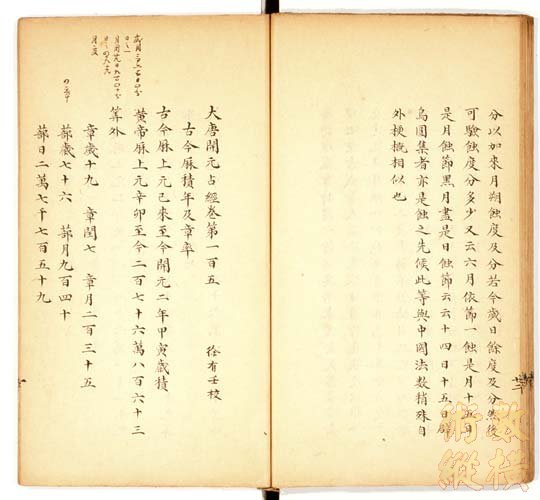 分以加來月朔蝕度及分若今歲日餘度及分然後
可驗蝕度分多少又云六月依節一蝕是月十五日
是月蝕節黑月盡是日蝕節云云十四日十五日
烏園集者亦是蝕之先候此等與中國法數稍殊自
外梗槪相似也
大唐開元占經卷第一百五
徐有壬校
古今厤積年及章率
古今厤上元己來至今開元二年甲寅歲積
黃帝厤上元辛卯至今二百七十六萬八百六十三
筭外
章歲十九 章閏七 章月二百三十五
蔀歲七十六 蔀月九百四十
蔀日二萬七千七百五十九